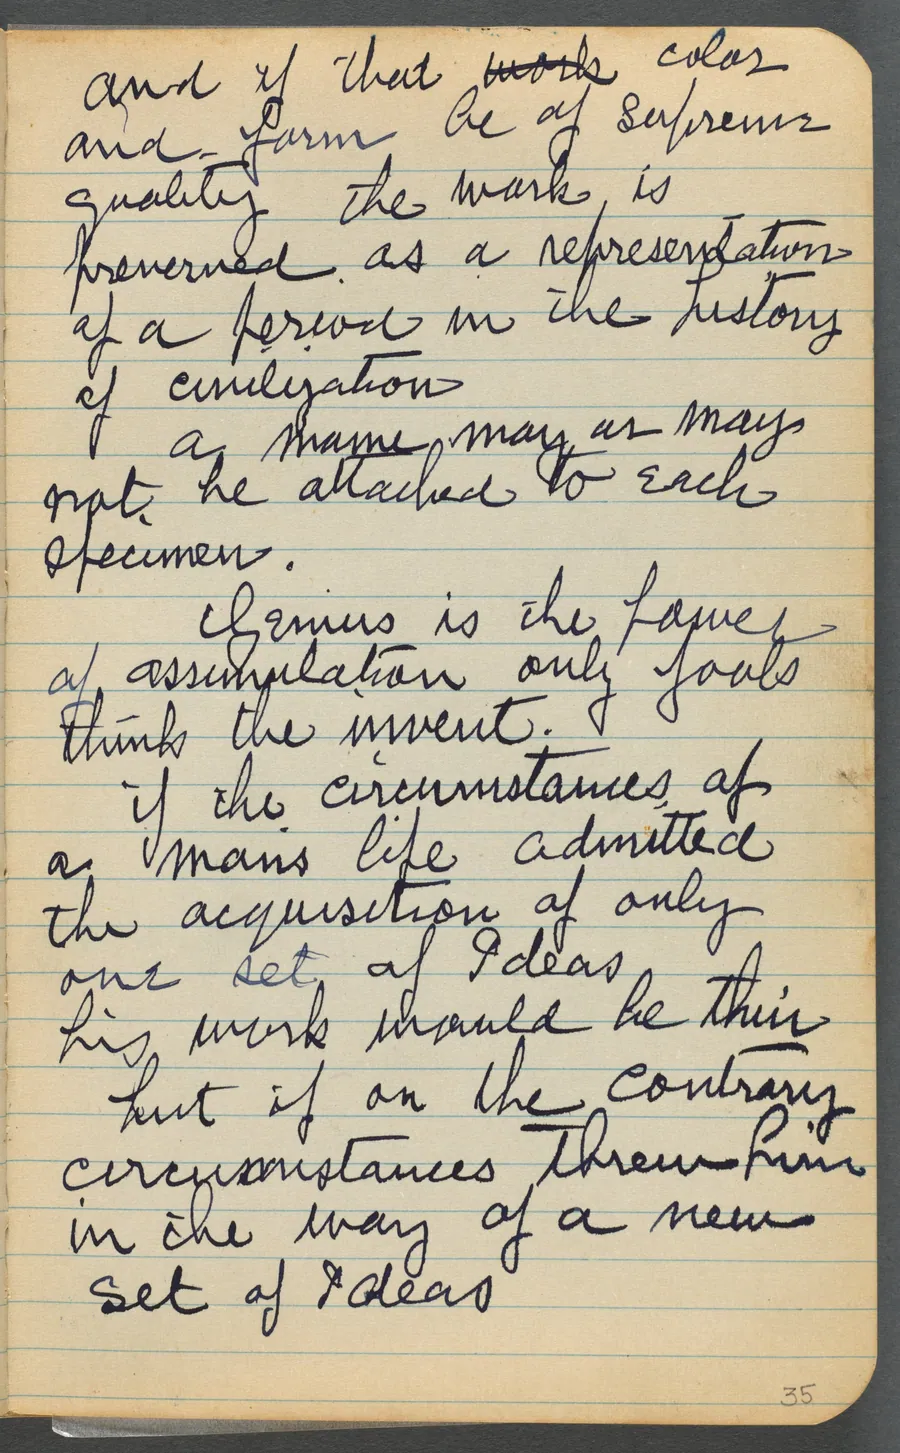 and if that work color
and form be of supreme
quality the work is
preserved as a representation
of a period in the history
of civilization
a name may or may
not be attached to each
specimen.
Genius is the power
of assimulation only fools
think the invent.
if the circumstances of
a mans life admitted
the acquisition of only
one set of Ideas
his work would be thin
but if on the contrary
circumstances threw him
in the way of a new
set of Ideas
35